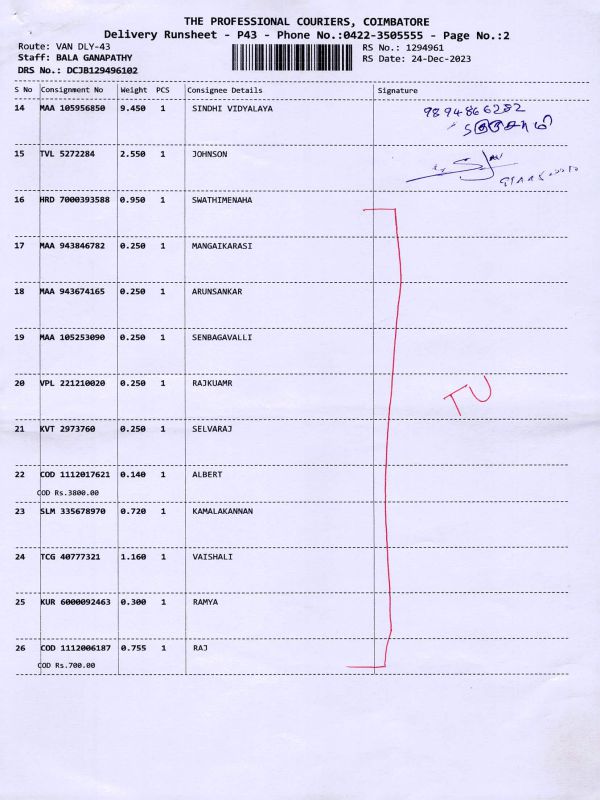 THE PROFESSIONAL COURIERS, COIMBATORE
Delivery Runsheet - P43 - Phone No.:0422-3505555 - Page No.:2
Route: VAN DLY-43
RS No.: 1294961
Staff: BALA GANAPATHY
RS Date: 24-Dec-2023
DRS No.: DCJB129496102
S No Consignment No Weight PCS Consignee Details Signature
14 MAA 105956850 9.450 1 SINDHI VIDYALAYA 9894866282
15 TVL 5272284 2.550 1 JOHNSON
16 HRD 7000393588 0.950 1 SWATHIMENAHA
17 MAA 943846782 0.250 1 MANGAIKARASI
18 MAA 943674165 0.250 1 ARUNSANKAR
19 MAA 105253090 0.250 1 SENBAGAVALLI
20 VPL 221210020 0.250 1 RAJKUAMR
TU
21 KVT 2973760 0.250 1 SELVARAJ
22 COD 1112017621 0.140 1 ALBERT
COD Rs.3800.00
23 SLM 335678970 0.720 1 KAMALAKANNAN
24 TCG 40777321 1.160 1 VAISHALI
25 KUR 6000092463 0.300 1 RAMYA
26 COD 1112006187 0.755 1 RAJ
COD Rs.700.00